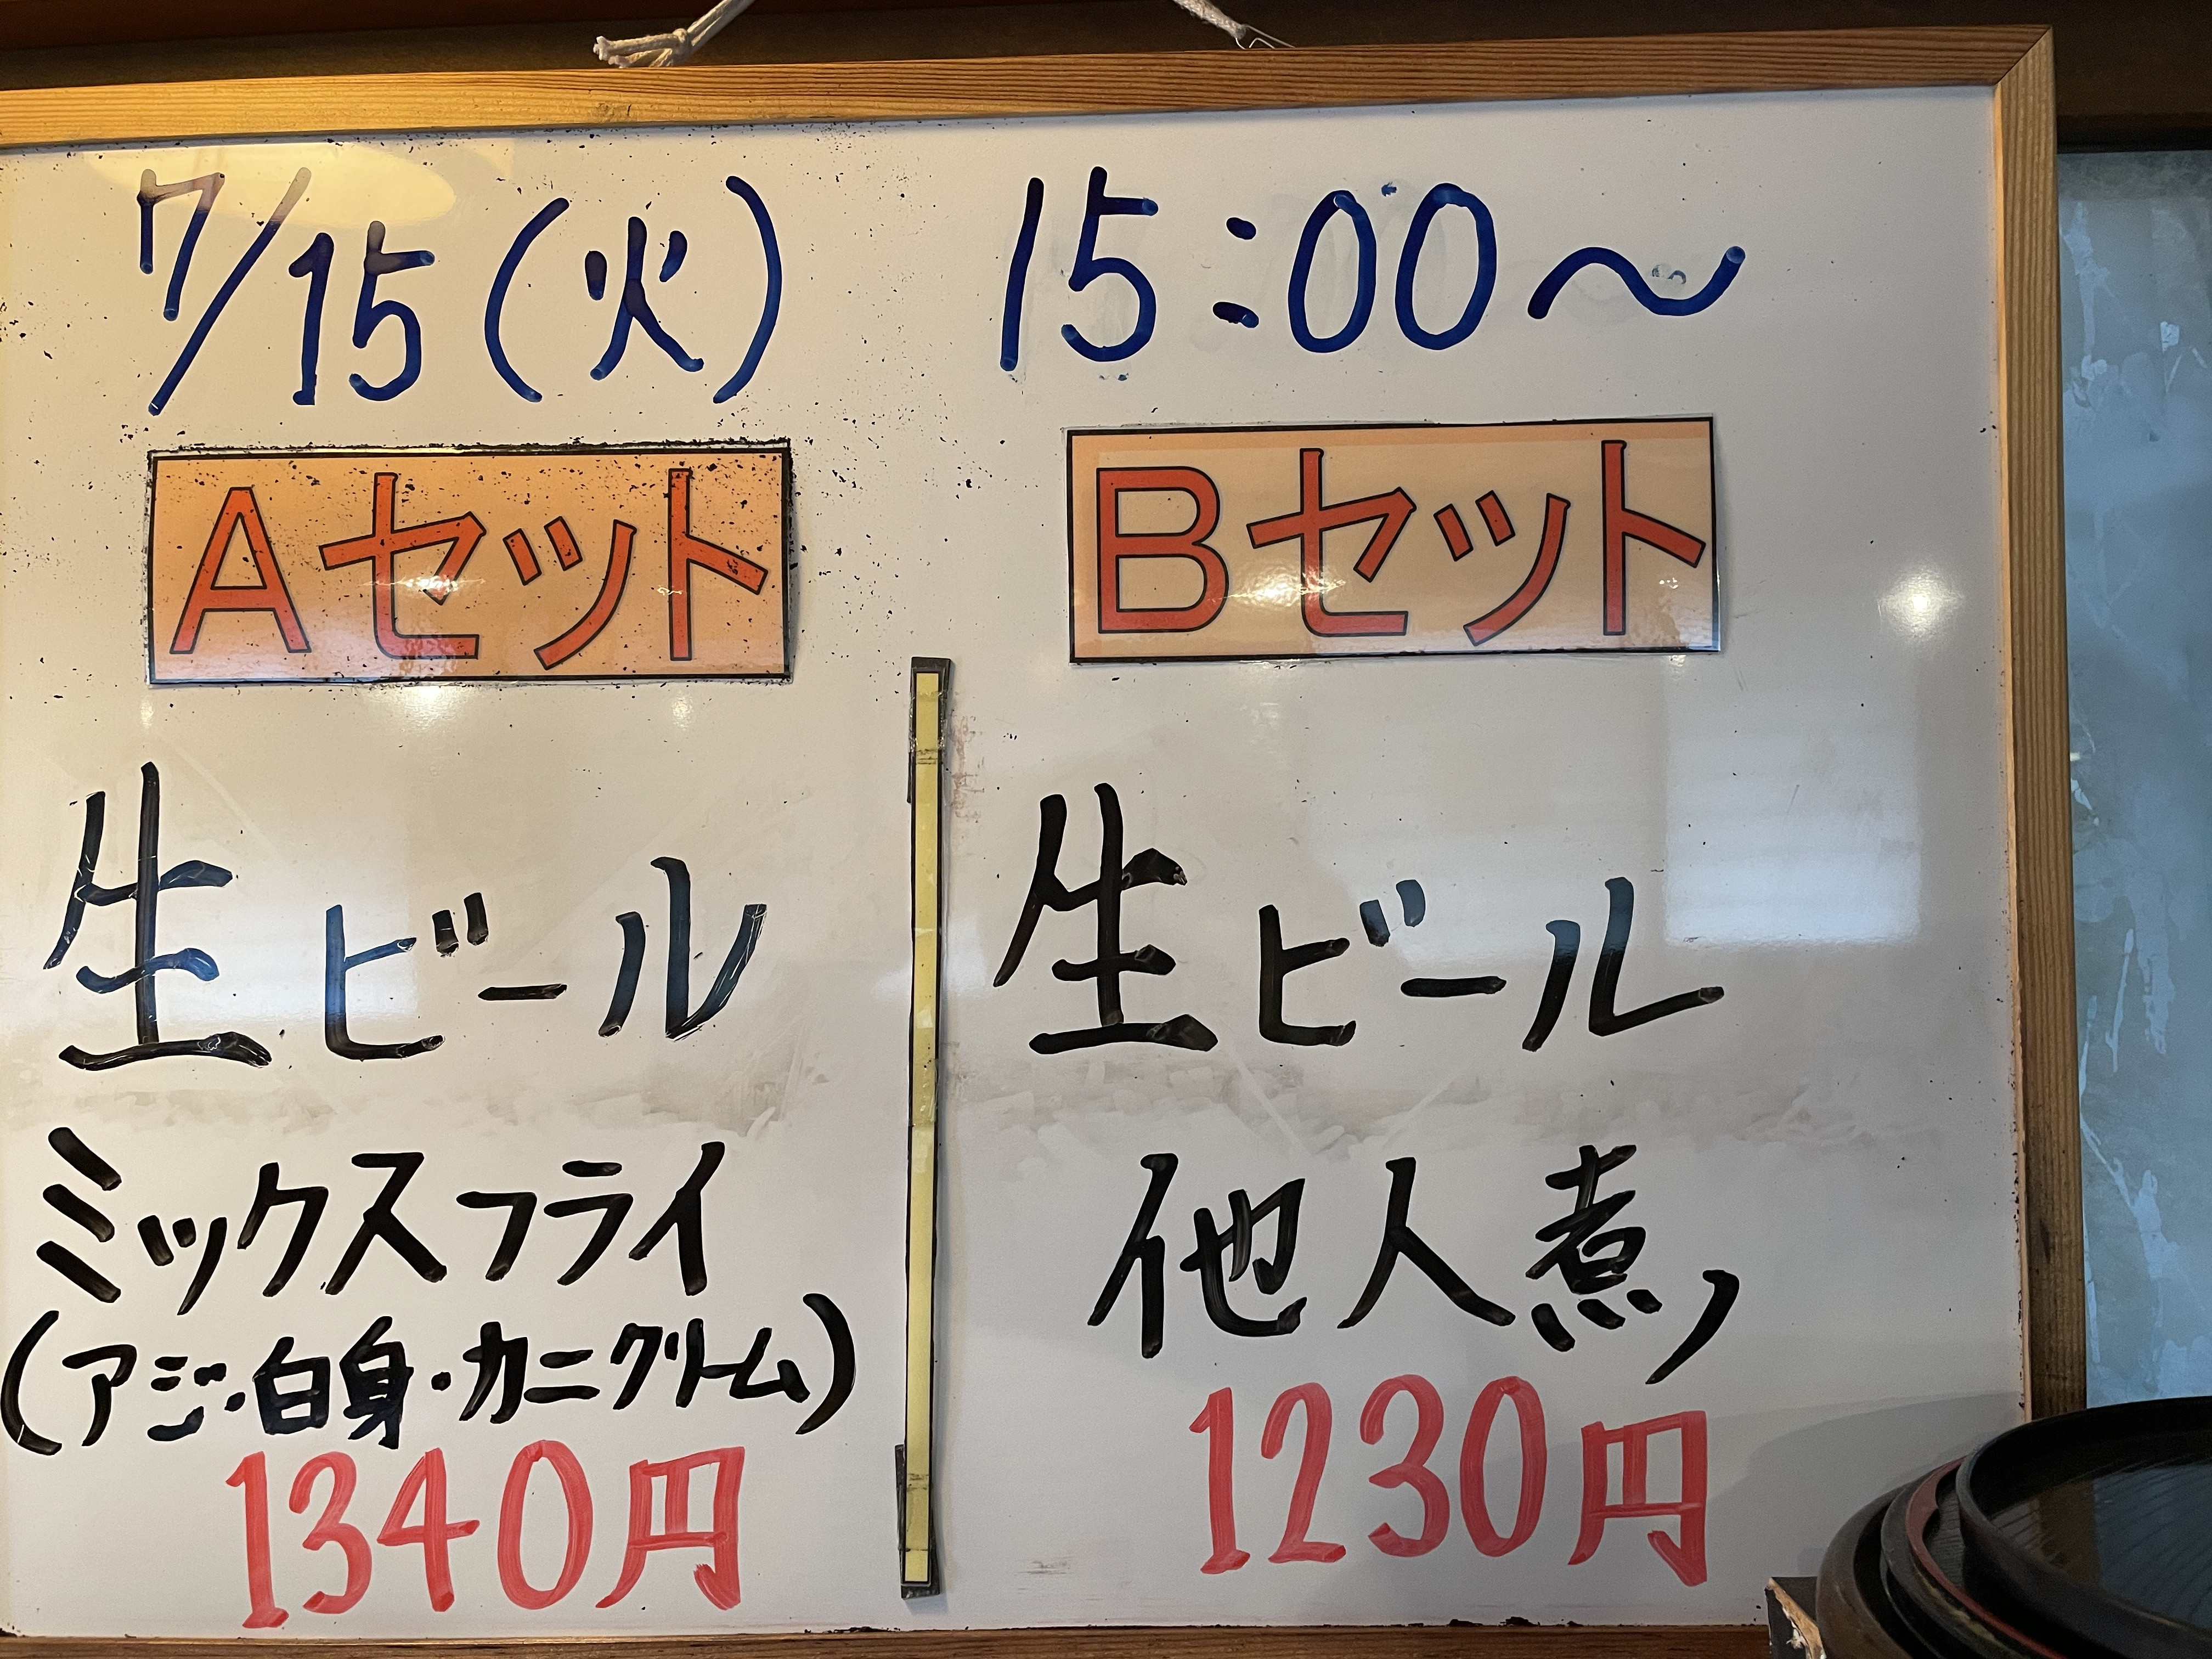 7/15(火) 15:00～
Aセット
生ビール
ミックスフライ
(アジ・白身・カニクリーム)
1340円
Bセット
生ビール
他人煮
1230円